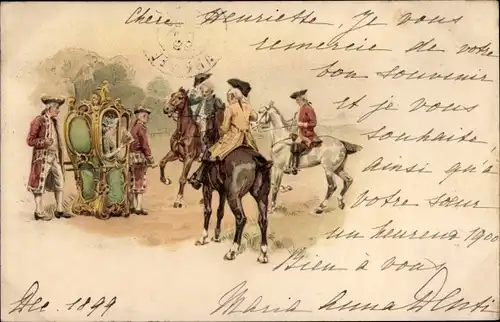 Chère Henriette, Je vous
remercie de votre
bon souvenir
et je vous
souhaite,
ainsi qu'à
votre sœur
un heureux 1900
Bien à vous
Maria Anna
Dec. 1899